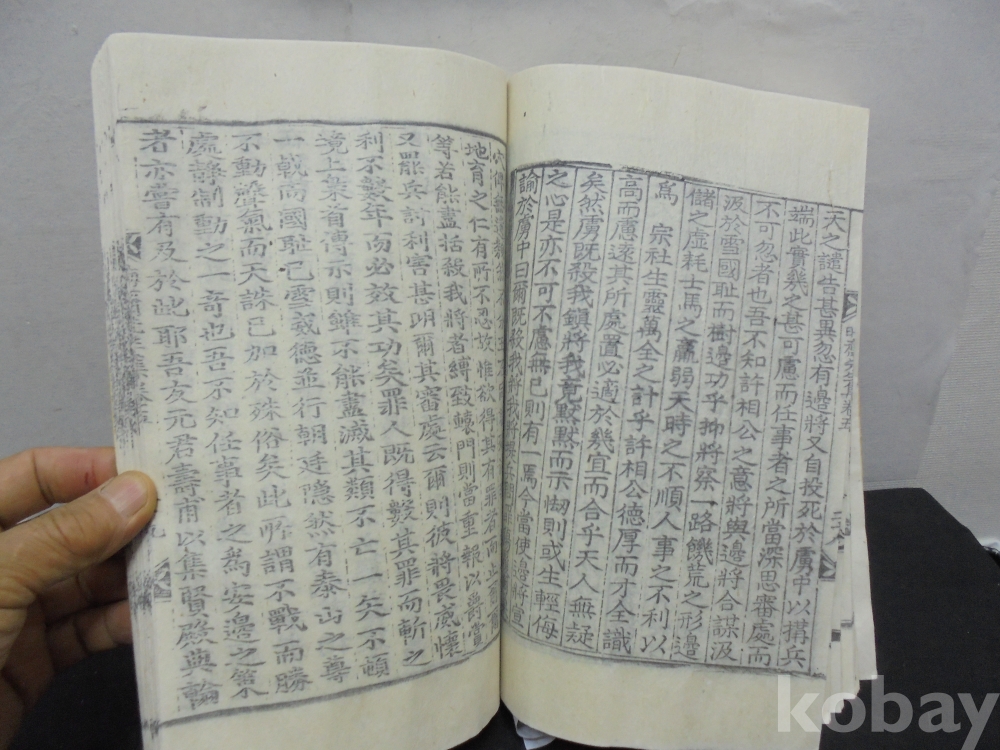 天之譴告甚異忽有邊將又自投死於虜中以搆兵
端此實幾之甚可慮而任事者之所當深思審處而
不可忽者也吾不知許相公之意將與邊將合謀汲
汲於雪國耻而樹邊功乎抑將察一路饑荒之形邊
儲之虛耗士馬之羸弱天時之不順人事之不利以
爲
宗社生靈萬全之計乎許相公德厚而才全識
高而慮遠其所處置必適於幾宜而合乎天人無疑
矣然虜旣殺我鎭將我竟點點而示㤼則或生輕侮
之心是亦不可不慮無已則有一焉今當使邊將宣
諭於虜中曰爾旣殺我將我
地育之仁有所不忍故惟欲得其有罪者而
等若能盡括殺我將者縛致轅門則當重報以爵賞
又罷兵討利害甚明爾其審處云爾則彼將畏威懷
利不數年而必效其功矣罪人旣得數其罪而斬之
境上梟首傳示則雖不能盡滅其類不亡一矢不頓
一戟而國耻已雪威德並行朝廷隱然有泰山之尊
不動聲氣而天誅已加於殊俗矣此所謂不戰而勝
處靜制動之一奇也吾不知任事者之爲安邊之策
者亦嘗有及於此耶吾友元君壽甫以集賢殿典翰
kobay